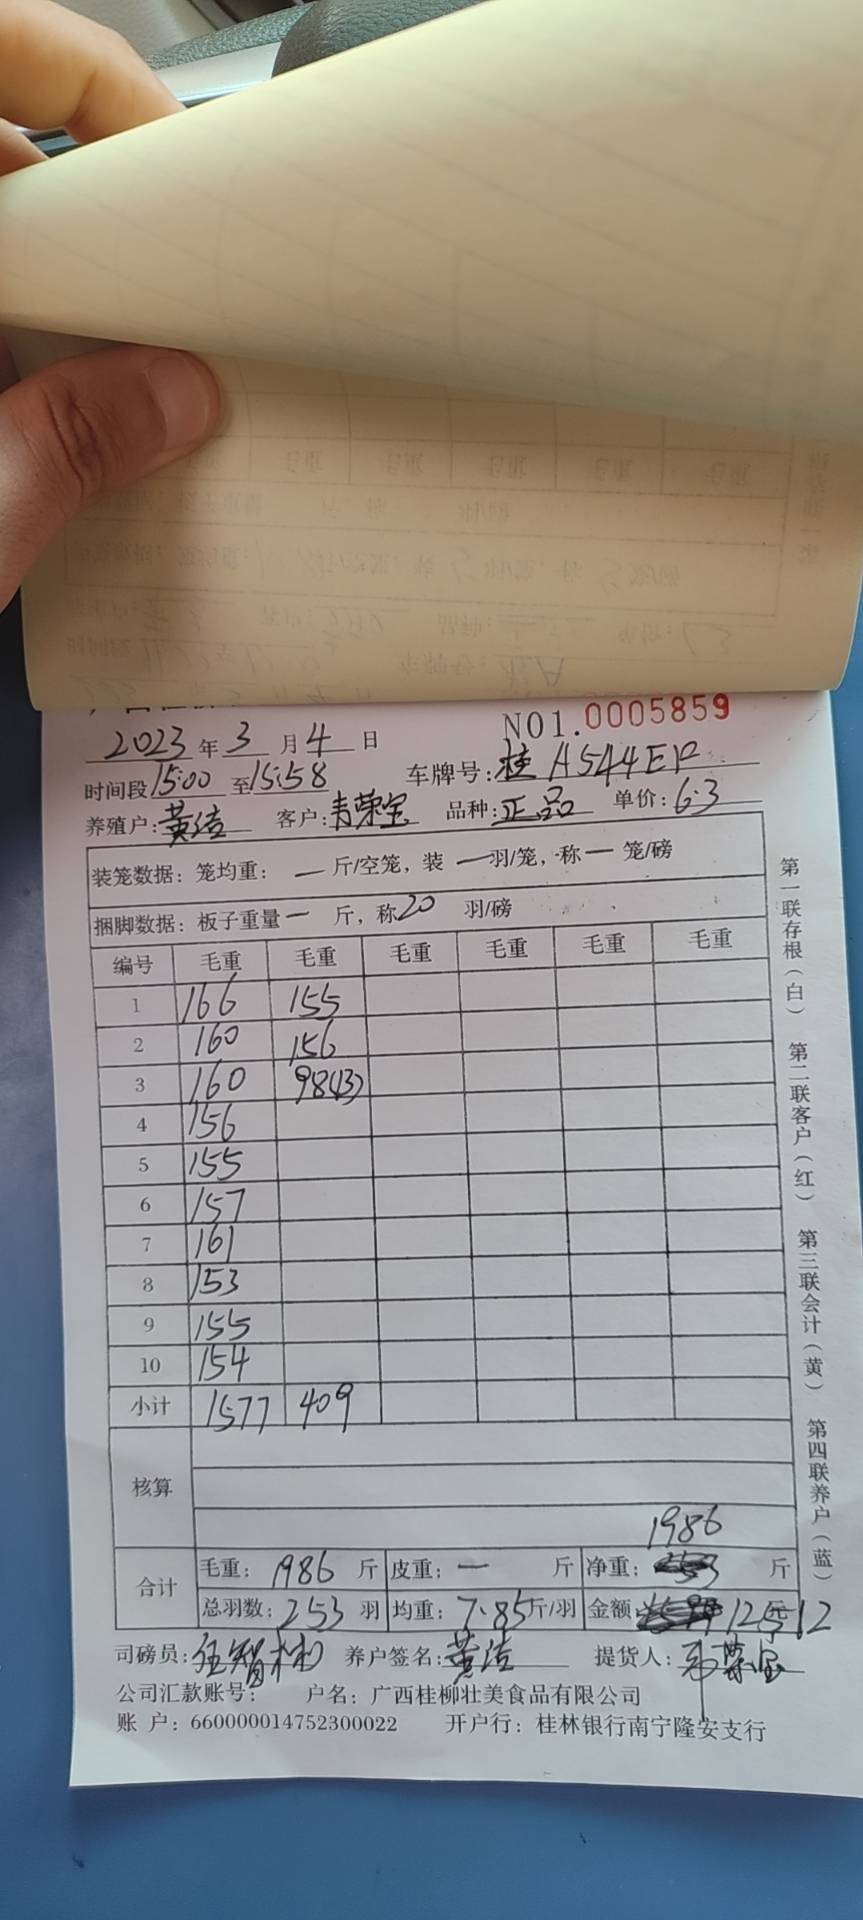 NO1.0005859
2023年3月4日
时间段15:00至15:58 车牌号:桂A544EP
养殖户:黄洁 客户:韦荣宝 品种:正品 单价:6.3
装笼数据:笼均重:一斤/空笼,装一羽/笼,称一笼/磅
捆脚数据:板子重量一斤,称20羽/磅
编号 毛重 毛重 毛重 毛重 毛重 毛重
1 166 155
2 160 156
3 160 98(13)
4 156
5 155
6 157
7 161
8 153
9 155
10 154
小计 1577 409
核算
1986
合计 毛重:1986斤 皮重:一斤 净重: 斤
总羽数:253羽 均重:7.85斤/羽 金额 12512
司磅员: 养户签名:黄洁 提货人:韦荣宝
公司汇款账号: 户名:广西桂柳壮美食品有限公司
账 户:660000014752300022 开户行:桂林银行南宁隆安支行
第一联存根(白) 第二联客户(红) 第三联会计(黄) 第四联养户(蓝)